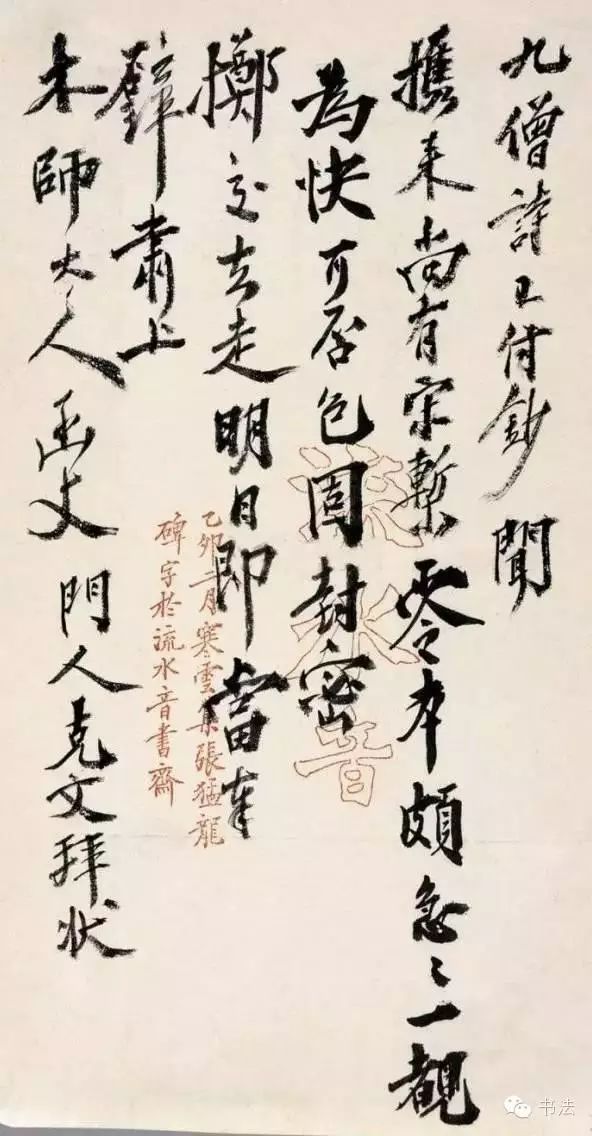 九僧詩已付鈔 聞
携来尚有宋槧零本頗急急一覩
為快可否包固封密
擲交去走明日即當奉
璧肅上
木師大人函丈 門人克文拜状
流水音
乙卯二月寒雲集張猛龍
碑字於流水音書齋
书法